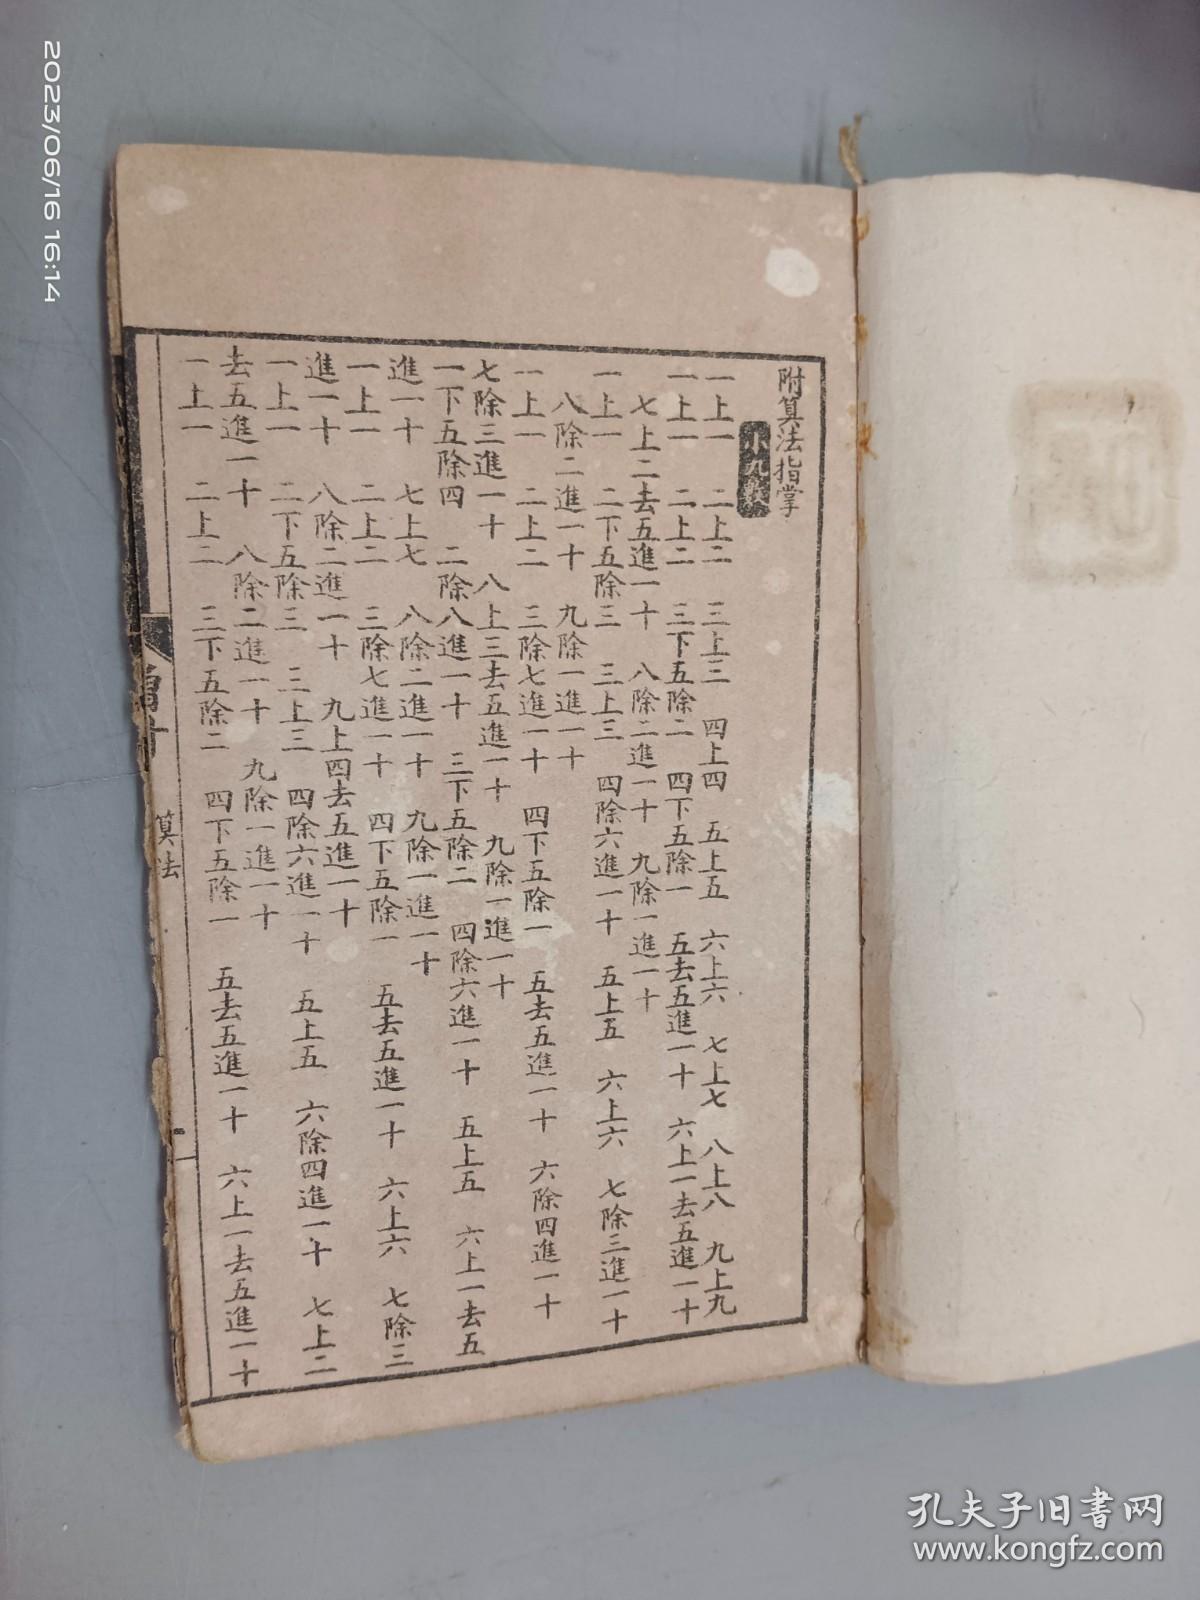 附算法指掌
小九數
一上一 二上二 三上三 四上四 五上五 六上六 七上七 八上八 九上九
一上一 二上二 三下五除二 四下五除一 五去五進一十 六上一去五進一十
七上二去五進一十 八除二進一十 九除一進一十
一上一 二下五除三 三上三 四除六進一十 五上五 六上六 七除三進一十
八除二進一十 九除一進一十
一上一 二上二 三除七進一十 四下五除一 五去五進一十 六除四進一十
七除三進一十 八上三去五進一十 九除一進一十
一下五除四 二除八進一十 三下五除二 四除六進一十 五上五 六上一去五
進一十 七上七 八除二進一十 九除一進一十
一上一 二上二 三除七進一十 四下五除一 五去五進一十 六上六 七除三
進一十 八除二進一十 九上四去五進一十
一上一 二下五除三 三上三 四除六進一十 五上五 六除四進一十 七上二
去五進一十 八除二進一十 九除一進一十
一上一 二上二 三下五除二 四下五除一 五去五進一十 六上一去五進一十
算法
一
2023/06/16 16:14
孔夫子旧书网
www.kongfz.com